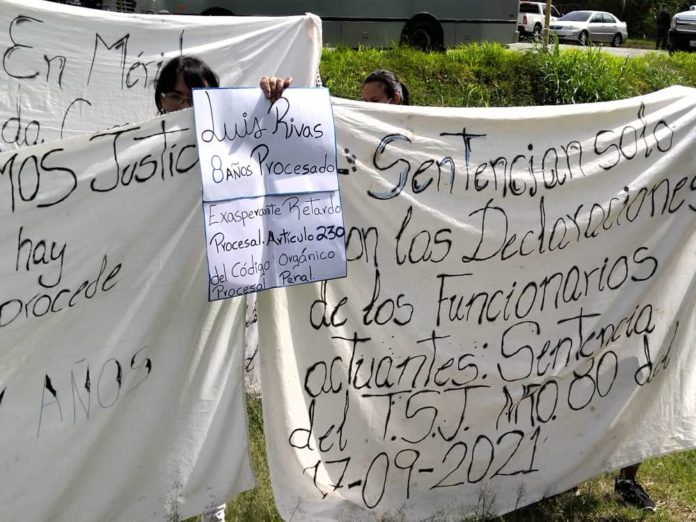 En Mérid
da
MOS Justic
hay
procede
AÑOS
Luis Rivas
8 AÑOS Procesado
Exasperante Retardo
Procesal. Artículo 230
del Código Orgánico
Procesal Penal.
: Sentencian solo
con las Declaraciones
de los Funcionarios
actuantes: Sentencia
del T.S.J. Nro. 80 del
17-09-2021